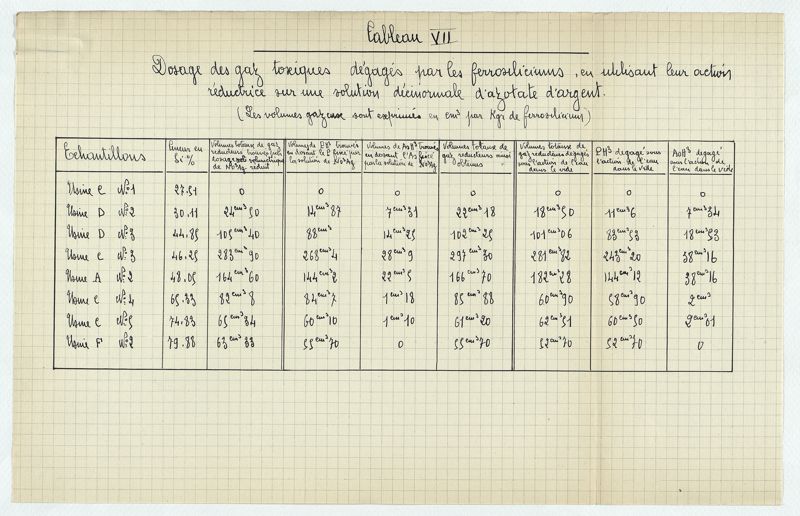 Tableau VII
Dosage des gaz toxiques dégagés par les ferrosiliciums, en utilisant leur action
réductrice sur une solution décinormale d'azotate d'argent.
(Les volumes gazeux sont exprimés en cm³ par Kgr de ferrosilicium)
Echantillons
Teneur en
Si %
Volumes totaux de gaz
réducteurs
de NO³Ag réduit
Volumes de PH³ trouvés
en dosant le P fixé par
la solution de NO³Ag
Volumes de AsH³ trouvés
en dosant l'As fixé
par la solution de NO³Ag
Volumes totaux de
gaz réducteurs ainsi
obtenus
Volumes totaux de
gaz réducteurs dégagés
sous l'action de l'eau
dans le vide
PH³ dégagé sous
l'action de l'eau
dans le vide
AsH³ dégagé
sous l'action de
l'eau dans le vide
Usine C N°1 27.51 0 0 0 0 0 0 0
Usine D N°2 30.11 24cm³50 14cm³87 7cm³31 22cm³18 18cm³50 11cm³6 7cm³34
Usine D N°3 44.85 105cm³40 88cm³ 14cm³25 102cm³25 101cm³06 83cm³53 18cm³53
Usine C N°3 46.25 283cm³90 268cm³4 28cm³9 297cm³30 281cm³32 243cm³20 38cm³16
Usine A N°2 48.05 164cm³60 144cm³2 22cm³5 166cm³70 182cm³28 144cm³12 38cm³16
Usine C N°4 65.33 82cm³8 84cm³7 1cm³18 85cm³88 60cm³90 58cm³90 2cm³
Usine C N°5 74.33 65cm³34 60cm³10 1cm³10 61cm³20 62cm³51 60cm³50 2cm³01
Usine F N°2 79.88 63cm³33 55cm³70 0 55cm³70 52cm³70 52cm³70 0